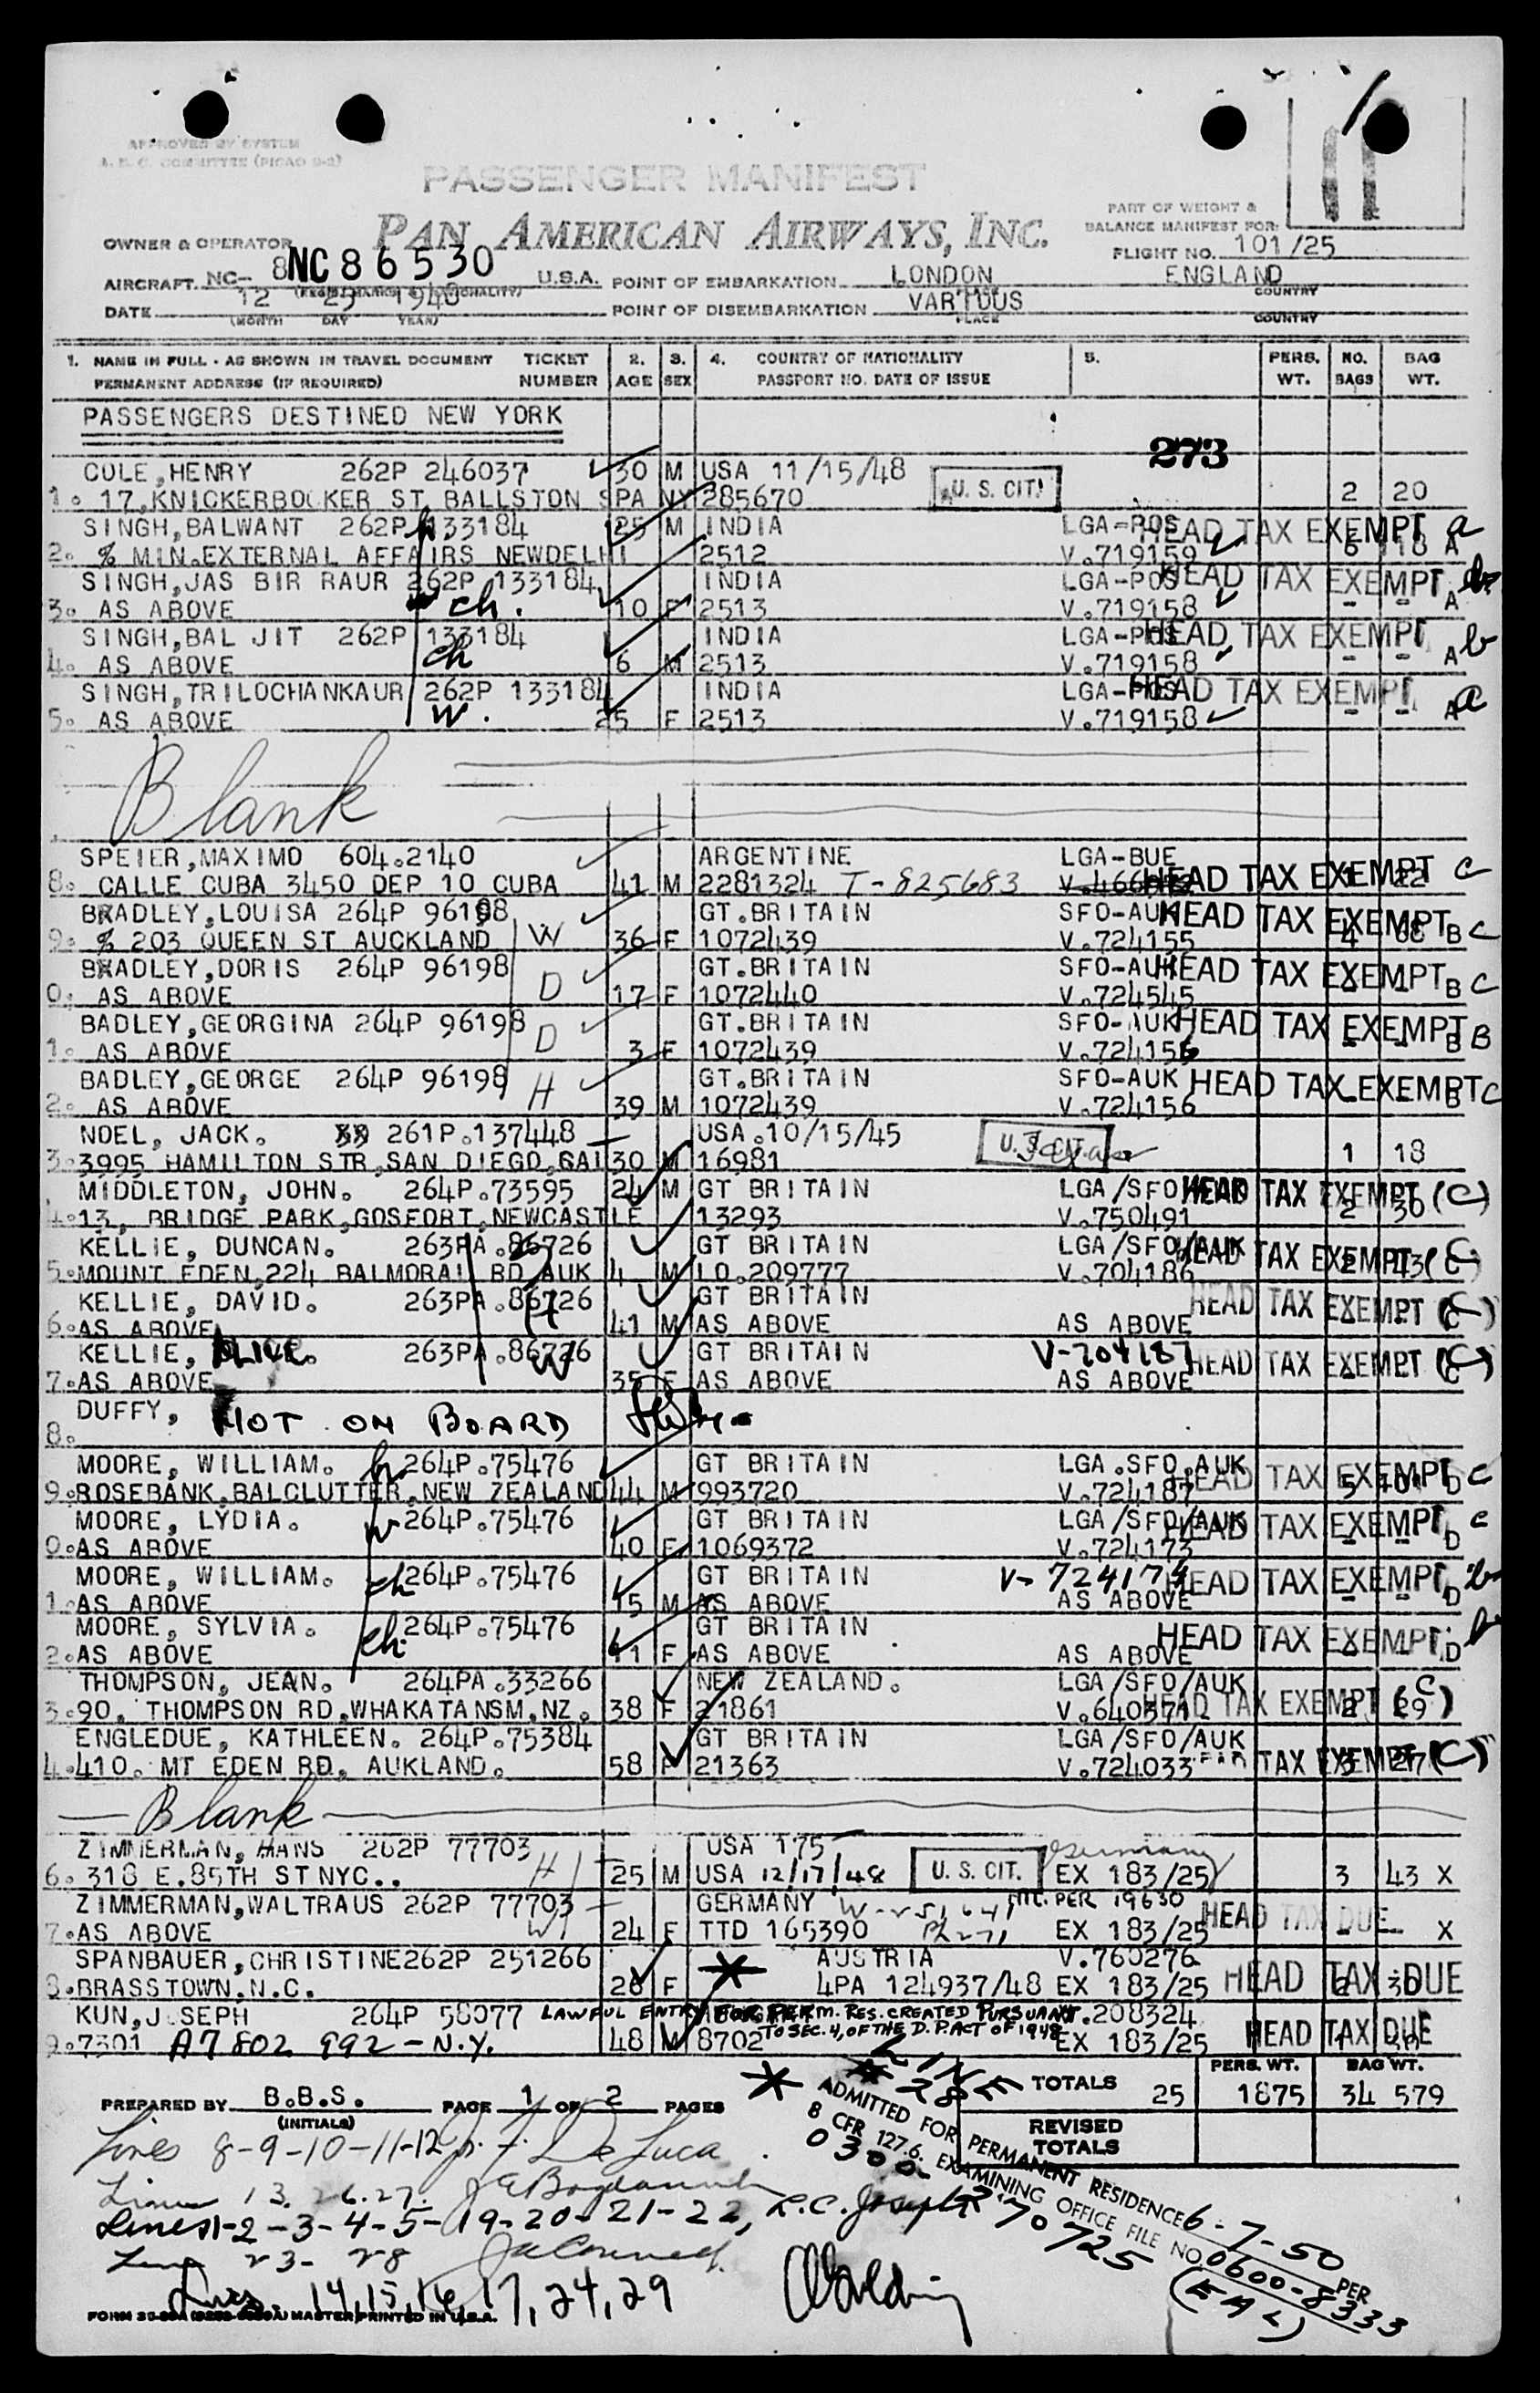 APPROVED BY SYSTEM
A. E. C. COMMITTEE (PICAO 9-2)
PASSENGER MANIFEST
PAN AMERICAN AIRWAYS, INC.
PART OF WEIGHT &
BALANCE MANIFEST FOR:
FLIGHT NO. 101/25
OWNER & OPERATOR
AIRCRAFT NC- 8 NC86530 U.S.A. POINT OF EMBARKATION LONDON ENGLAND
(REGIS. MARKS & NATIONALITY) PLACE COUNTRY
DATE 12 25 1948 POINT OF DISEMBARKATION VARIOUS
(MONTH DAY YEAR) PLACE COUNTRY
1. NAME IN FULL - AS SHOWN IN TRAVEL DOCUMENT TICKET 2. 3. 4. COUNTRY OF NATIONALITY 5. PERS. NO. BAG
PERMANENT ADDRESS (IF REQUIRED) NUMBER AGE SEX PASSPORT NO. DATE OF ISSUE WT. BAGS WT.
PASSENGERS DESTINED NEW YORK
273
COLE,HENRY 262P 246037 30 M USA 11/15/48 U. S. CIT.
1. 17,KNICKERBOCKER ST BALLSTON SPA NY 285670 2 20
SINGH,BALWANT 262P 133184 25 M INDIA LGA-POS HEAD TAX EXEMPT a
2. % MIN.EXTERNAL AFFAIRS NEWDELHI 2512 V.719159 6 118 A
SINGH,JAS BIR RAUR 262P 133184 INDIA LGA-POS HEAD TAX EXEMPT b
3. AS ABOVE ch. 10 F 2513 V.719158 - - A
SINGH,BAL JIT 262P 133184 INDIA LGA-POS HEAD TAX EXEMPT b
4. AS ABOVE ch 6 M 2513 V.719158 - - A
SINGH,TRILOCHANKAUR 262P 133184 INDIA LGA-POS HEAD TAX EXEMPT a
5. AS ABOVE W. 25 F 2513 V.719158 - - A
Blank
SPEIER,MAXIMO 604.2140 ARGENTINE LGA-BUE HEAD TAX EXEMPT C
8. CALLE CUBA 3450 DEP 10 CUBA 41 M 2281324 T-825683 1 22
BRADLEY,LOUISA 264P 96198 GT.BRITAIN SFO-AUK HEAD TAX EXEMPT C
9. % 203 QUEEN ST AUCKLAND W 36 F 1072439 V.724155 4 68 B
BRADLEY,DORIS 264P 96198 GT.BRITAIN SFO-AUK HEAD TAX EXEMPT C
0. AS ABOVE D 17 F 1072440 V.724545 - - B
BADLEY,GEORGINA 264P 96198 GT.BRITAIN SFO-AUK HEAD TAX EXEMPT B
1. AS ABOVE D 3 F 1072439 V.724156 - - B
BADLEY,GEORGE 264P 96198 GT.BRITAIN SFO-AUK HEAD TAX EXEMPT C
2. AS ABOVE H 39 M 1072439 V.724156 - - B
NOEL, JACK. 261P.137448 USA.10/15/45 U. S. CIT.
3. 3995 HAMILTON STR,SAN DIEGO,CAL 30 M 16981 1 18
MIDDLETON, JOHN. 264P.73595 24 M GT BRITAIN LGA/SFO/AUK HEAD TAX EXEMPT (C)
4.13, BRIDGE PARK,GOSFORT,NEWCASTLE 13293 V.750491 2 30
KELLIE, DUNCAN. 263PA.86726 GT BRITAIN LGA/SFO/AUK HEAD TAX EXEMPT (C)
5.MOUNT EDEN,224 BALMORAL RD,AUK 4 M LO.209777 V.704186
KELLIE, DAVID. 263PA.86726 GT BRITAIN HEAD TAX EXEMPT (C)
6.AS ABOVE H 41 M AS ABOVE AS ABOVE
KELLIE, ALICE. 263PA.86726 GT BRITAIN V-704187 HEAD TAX EXEMPT (C)
7.AS ABOVE W 35 F AS ABOVE AS ABOVE
DUFFY, NOT ON BOARD
8.
MOORE, WILLIAM. h. 264P.75476 GT BRITAIN LGA.SFO.AUK HEAD TAX EXEMPT C
9.ROSEBANK,BALCLUTTER,NEW ZEALAND 44 M 993720 V.724187 5 101 D
MOORE, LYDIA. w 264P.75476 GT BRITAIN LGA/SFO/AUK HEAD TAX EXEMPT c
0.AS ABOVE 40 F 1069372 V.724173 - - D
MOORE, WILLIAM. ch 264P.75476 GT BRITAIN V-724174 HEAD TAX EXEMPT b
1.AS ABOVE 15 M AS ABOVE AS ABOVE - - D
MOORE, SYLVIA. ch. 264P.75476 GT BRITAIN HEAD TAX EXEMPT b
2.AS ABOVE 11 F AS ABOVE AS ABOVE D
THOMPSON, JEAN. 264PA.33266 NEW ZEALAND. LGA/SFO/AUK HEAD TAX EXEMPT (C)
3.90. THOMPSON RD,WHAKATANSM,NZ. 38 F 21861 V.640371 2 29
ENGLEDUE, KATHLEEN. 264P.75384 GT BRITAIN LGA/SFO/AUK
4.410. MT EDEN RD, AUKLAND. 58 F 21363 V.724033 TAX EXEMPT (C) 3 27
Blank
ZIMMERMAN, HANS 262P 77703 USA 175 Germany
6. 318 E.85TH ST NYC.. H 25 M USA 12/17/48 U. S. CIT. EX 183/25 3 43 X
ZIMMERMAN,WALTRAUS 262P 77703 GERMANY PER 19630 HEAD TAX DUE
7.AS ABOVE W 24 F TTD 165390 EX 183/25 - X
SPANBAUER,CHRISTINE262P 251266 AUSTRIA V.760276
8.BRASSTOWN.N.C. 26 F * 4PA 124937/48 EX 183/25 HEAD TAX DUE 2 30
KUN,JOSEPH 264P 58077 LAWFUL ENTRY FOR PERM. RES. CREATED PURSUANT V.208324
9.7301 A7802 992 - N.Y. 48 M 8702 TO SEC. 4, OF THE D.P. ACT OF 1948 EX 183/25 HEAD TAX DUE
PERS. WT. BAG WT.
TOTALS 25 1875 34 579
REVISED TOTALS
PREPARED BY B.B.S. PAGE 1 OF 2 PAGES
(INITIALS)
* LINE
# 28
ADMITTED FOR PERMANENT RESIDENCE 6-7-50
8 CFR 127.6. EXAMINING OFFICE FILE NO. 0600-8333 PER
0300- 270725 (EAL)
Lines 8-9-10-11-12 De Luca
Lines 13. 26. 27.
Lines 1-2-3-4-5-19-20-21-22, L.C. Joseph
Line 23- 28
Lines 14,15,16,17,24,29
MASTER PRINTED IN U.S.A.